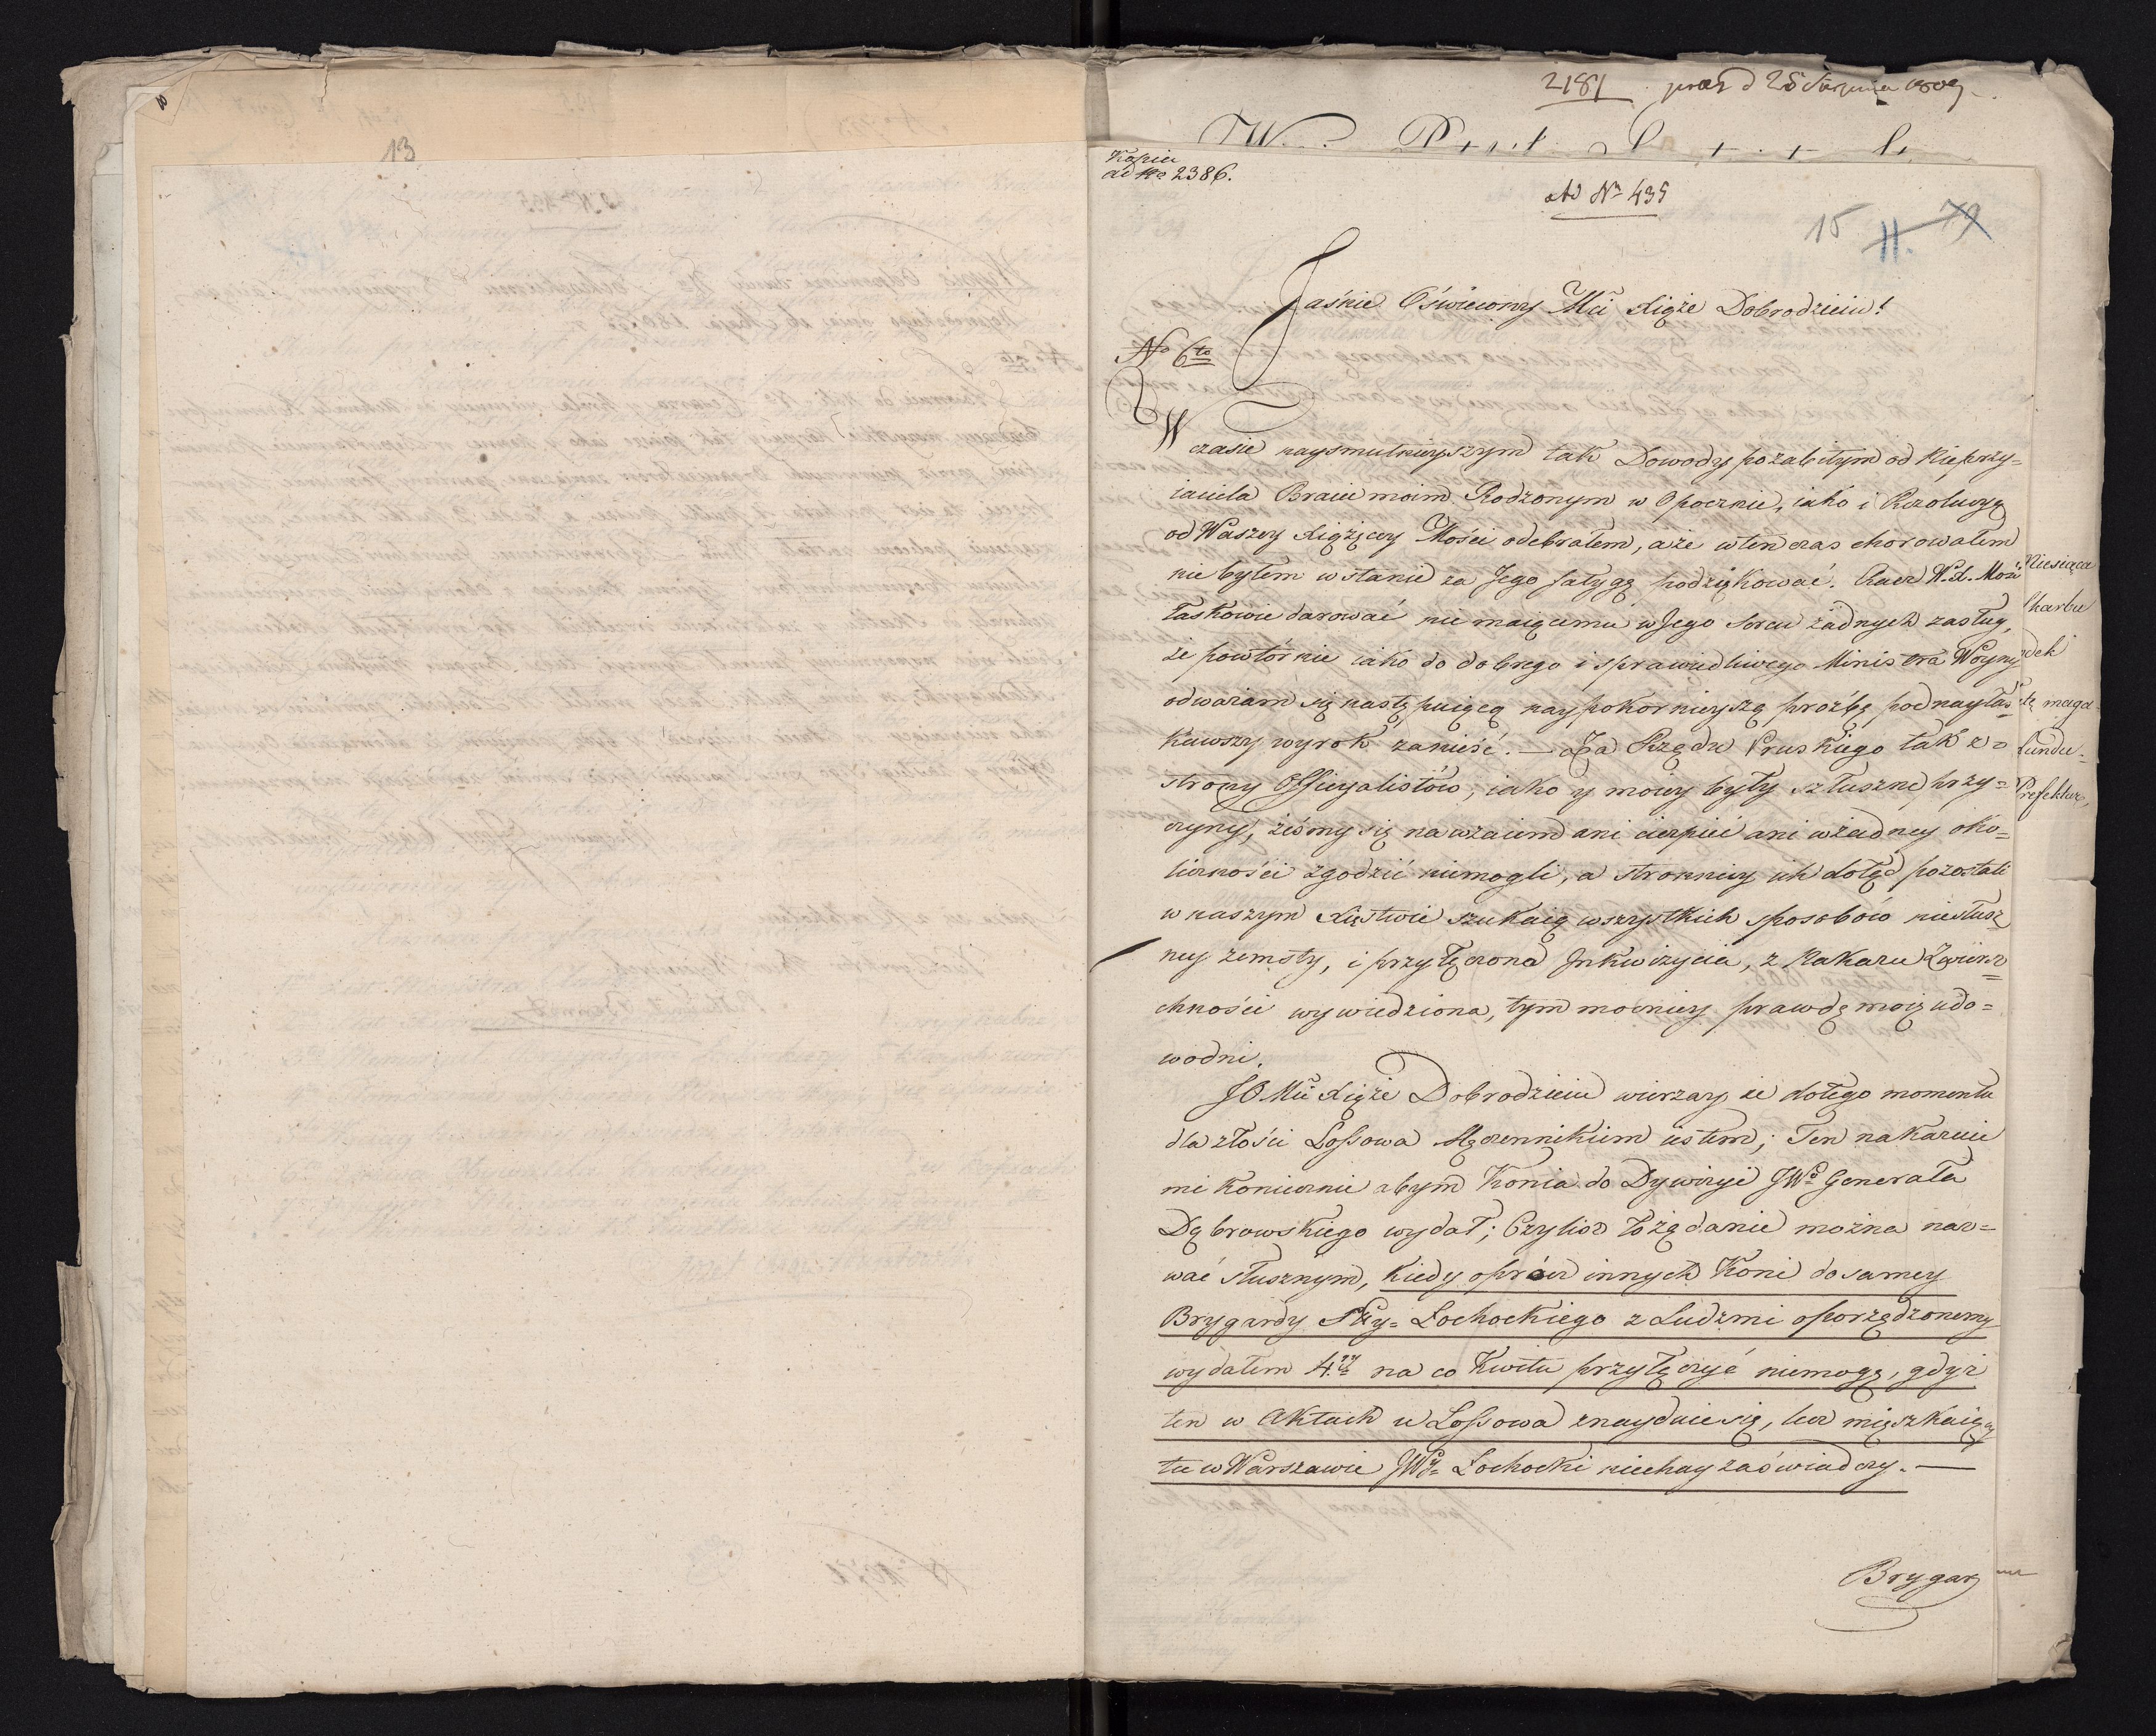 13
2181 praes d 25 Sierpnia 1809
Kopiia
ad No 2386.
Ad Nr 435
15 11. 79
Jaśnie Oświecony Mci Xiąże Dobrodzieiu!
No 6to
W czasie naysmutnieyszym tak Dowody po zabitym od Nieprzy=
iaciela Bracie moim Rodzonym w Opocznie, iako i Rezolucyą
od Waszey Xiążęcey Mości odebrałem, a że w ten czas chorowałem
nie byłem w stanie za Jego fatygę podziękować. Racz W.X. Mość
łaskawie darować nie maiącemu w Jego sercu żadnych zasług,
że powtórnie iako do dobrego i sprawiedliwego Ministra Woyny
odważam się następuiącą naypokornieyszą prożbę pod nayłas=
kawszy wyrok zanieść. — Za Rządu Pruskiego tak z=
strony Officyalistów, iako y moiey były słuszne przy=
czyny, żeśmy się nawzaiem ani cierpieć ani w żadney oko=
liczności zgodzić niemogli, a stronnicy ich dotąd pozostali
w naszym Xięstwie szukaią wszystkich sposobów niesłusz
ney zemsty, i przyłączona Inkwizycia, z Nakazu Zwierz=
chności wywiedziona, tym mocniey prawdę moię udo=
wodni.
JO Mci Xiąże Dobrodzieiu wierzay że do tego momentu
dla złości Lossowa Męczennikiem iestem; Ten nakazuie
mi koniecznie abym Konia do Dywizyi JWo Generała
Dąbrowskiego wydał; Czyliż to żądanie można naz=
wać słusznym, kiedy oprócz innych Koni do samey
Brygardy Łochockiego z Ludzmi oporządzonemy
wydałem 4. na co Kwitu przyłączyć niemogę, gdyż
ten w Aktach u Lossowa znayduie się, lecz mięszkaiący
tu w Warszawie JW Łochocki niechay zaświadczy. —
Brygar
Miesiąca
Skarbu
maga
fundu=
Prefektur,